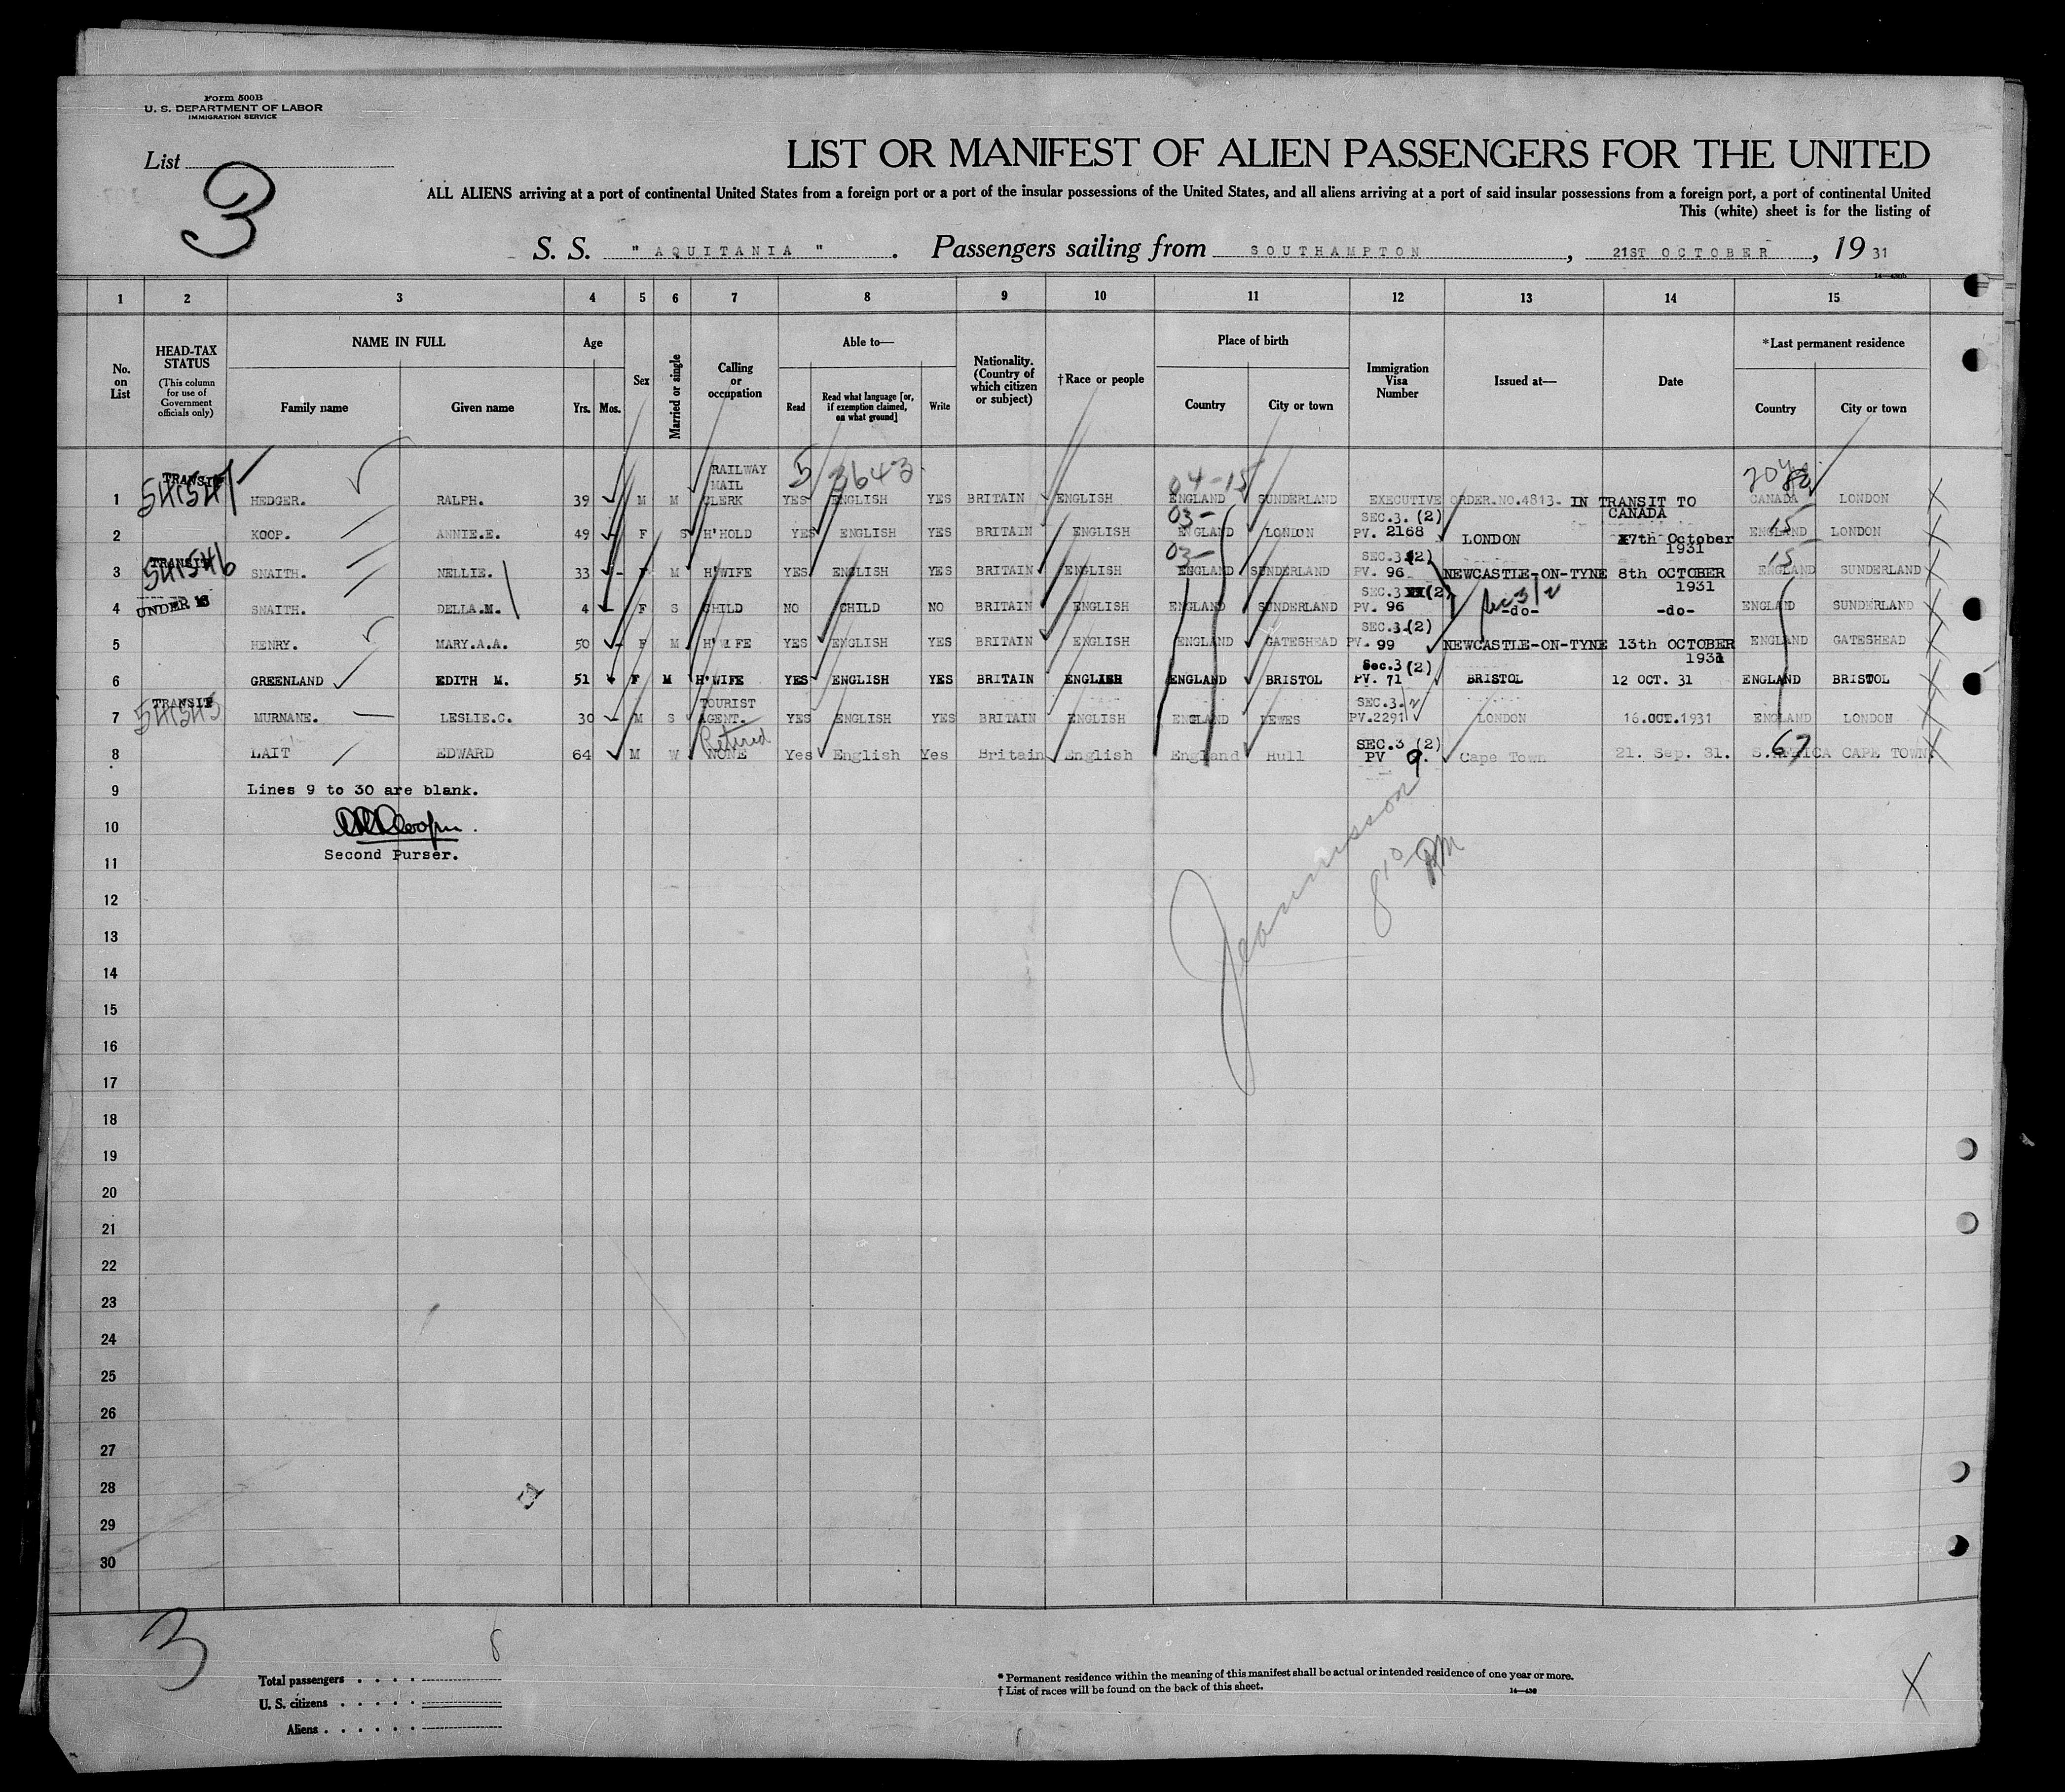 Form 500B
U. S. DEPARTMENT OF LABOR
IMMIGRATION SERVICE
List
3
LIST OR MANIFEST OF ALIEN PASSENGERS FOR THE UNITED
ALL ALIENS arriving at a port of continental United States from a foreign port or a port of the insular possessions of the United States, and all aliens arriving at a port of said insular possessions from a foreign port, a port of continental United
This (white) sheet is for the listing of
S. S. " AQUITANIA " . Passengers sailing from SOUTHAMPTON , 21ST OCTOBER , 19 31
1 2 3 4 5 6 7 8 9 10 11 12 13 14 15
No. on List
HEAD-TAX STATUS (This column for use of Government officials only)
NAME IN FULL Family name Given name
Age Yrs. Mos.
Sex
Married or single
Calling or occupation
Able to— Read Read what language [or, if exemption claimed, on what ground] Write
Nationality. (Country of which citizen or subject)
†Race or people
Place of birth Country City or town
Immigration Visa Number
Issued at—
Date
*Last permanent residence Country City or town
5 3643 04-15
1 TRANSIT 541541 HEDGER. RALPH. 39 M M RAILWAY MAIL CLERK YES ENGLISH YES BRITAIN ENGLISH ENGLAND SUNDERLAND EXECUTIVE ORDER.NO.4813. IN TRANSIT TO CANADA CANADA LONDON
2 KOOP. ANNIE.E. 49 F S H'HOLD YES ENGLISH YES BRITAIN ENGLISH 03- ENGLAND LONDON SEC.3.(2) PV. 2168 LONDON 17th October 1931 15 ENGLAND LONDON
3 TRANSIT 541546 SNAITH. NELLIE. 33 F M H'WIFE YES ENGLISH YES BRITAIN ENGLISH 03- ENGLAND SUNDERLAND SEC.3(2) PV. 96 NEWCASTLE-ON-TYNE 8th OCTOBER 1931 15 ENGLAND SUNDERLAND
4 UNDER 16 SNAITH. DELLA.M. 4 F S CHILD NO CHILD NO BRITAIN ENGLISH ENGLAND SUNDERLAND SEC.3 (2) PV. 96 Sec 3/2 -do- -do- ENGLAND SUNDERLAND
5 HENRY. MARY.A.A. 50 F M H'WIFE YES ENGLISH YES BRITAIN ENGLISH ENGLAND GATESHEAD SEC.3.(2) PV. 99 NEWCASTLE-ON-TYNE 13th OCTOBER 1931 ENGLAND GATESHEAD
6 GREENLAND EDITH M. 51 F M H'WIFE YES ENGLISH YES BRITAIN ENGLISH ENGLAND BRISTOL Sec.3 (2) PV. 71 BRISTOL 12 OCT. 31 ENGLAND BRISTOL
7 TRANSIT 541545 MURNANE. LESLIE.C. 30 M S TOURIST AGENT. YES ENGLISH YES BRITAIN ENGLISH ENGLAND LEWES SEC.3. PV.2291 LONDON 16.OCT.1931 ENGLAND LONDON
8 LAIT EDWARD 64 M W Retired NONE Yes English Yes Britain English England Hull SEC.3 (2) PV 9. Cape Town 21. Sep. 31. 67 S.AFRICA CAPE TOWN.
9 Lines 9 to 30 are blank.
10
Second Purser.
11
8 10 PM
12
13
14
15
16
17
18
19
20
21
22
23
24
25
26
27
28
29
30
3
8
Total passengers
U. S. citizens
Aliens
* Permanent residence within the meaning of this manifest shall be actual or intended residence of one year or more.
† List of races will be found on the back of this sheet.
14—430
X